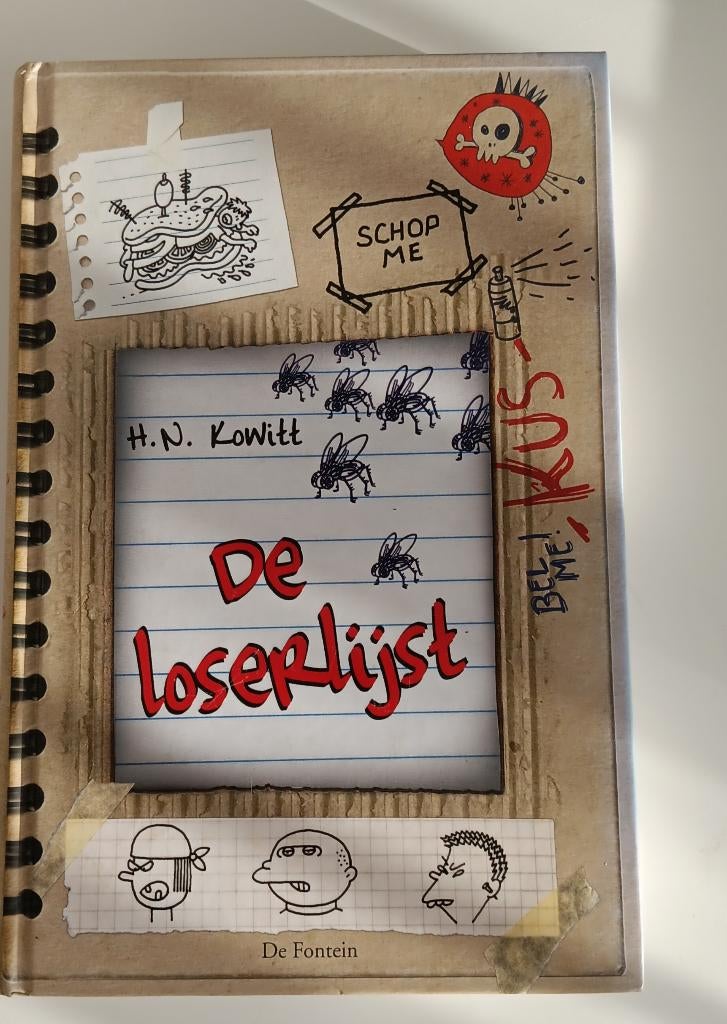 SCHOP
ME
H.N. Kowitt
KUS
BEL
ME!
De
loserlijst
De Fontein